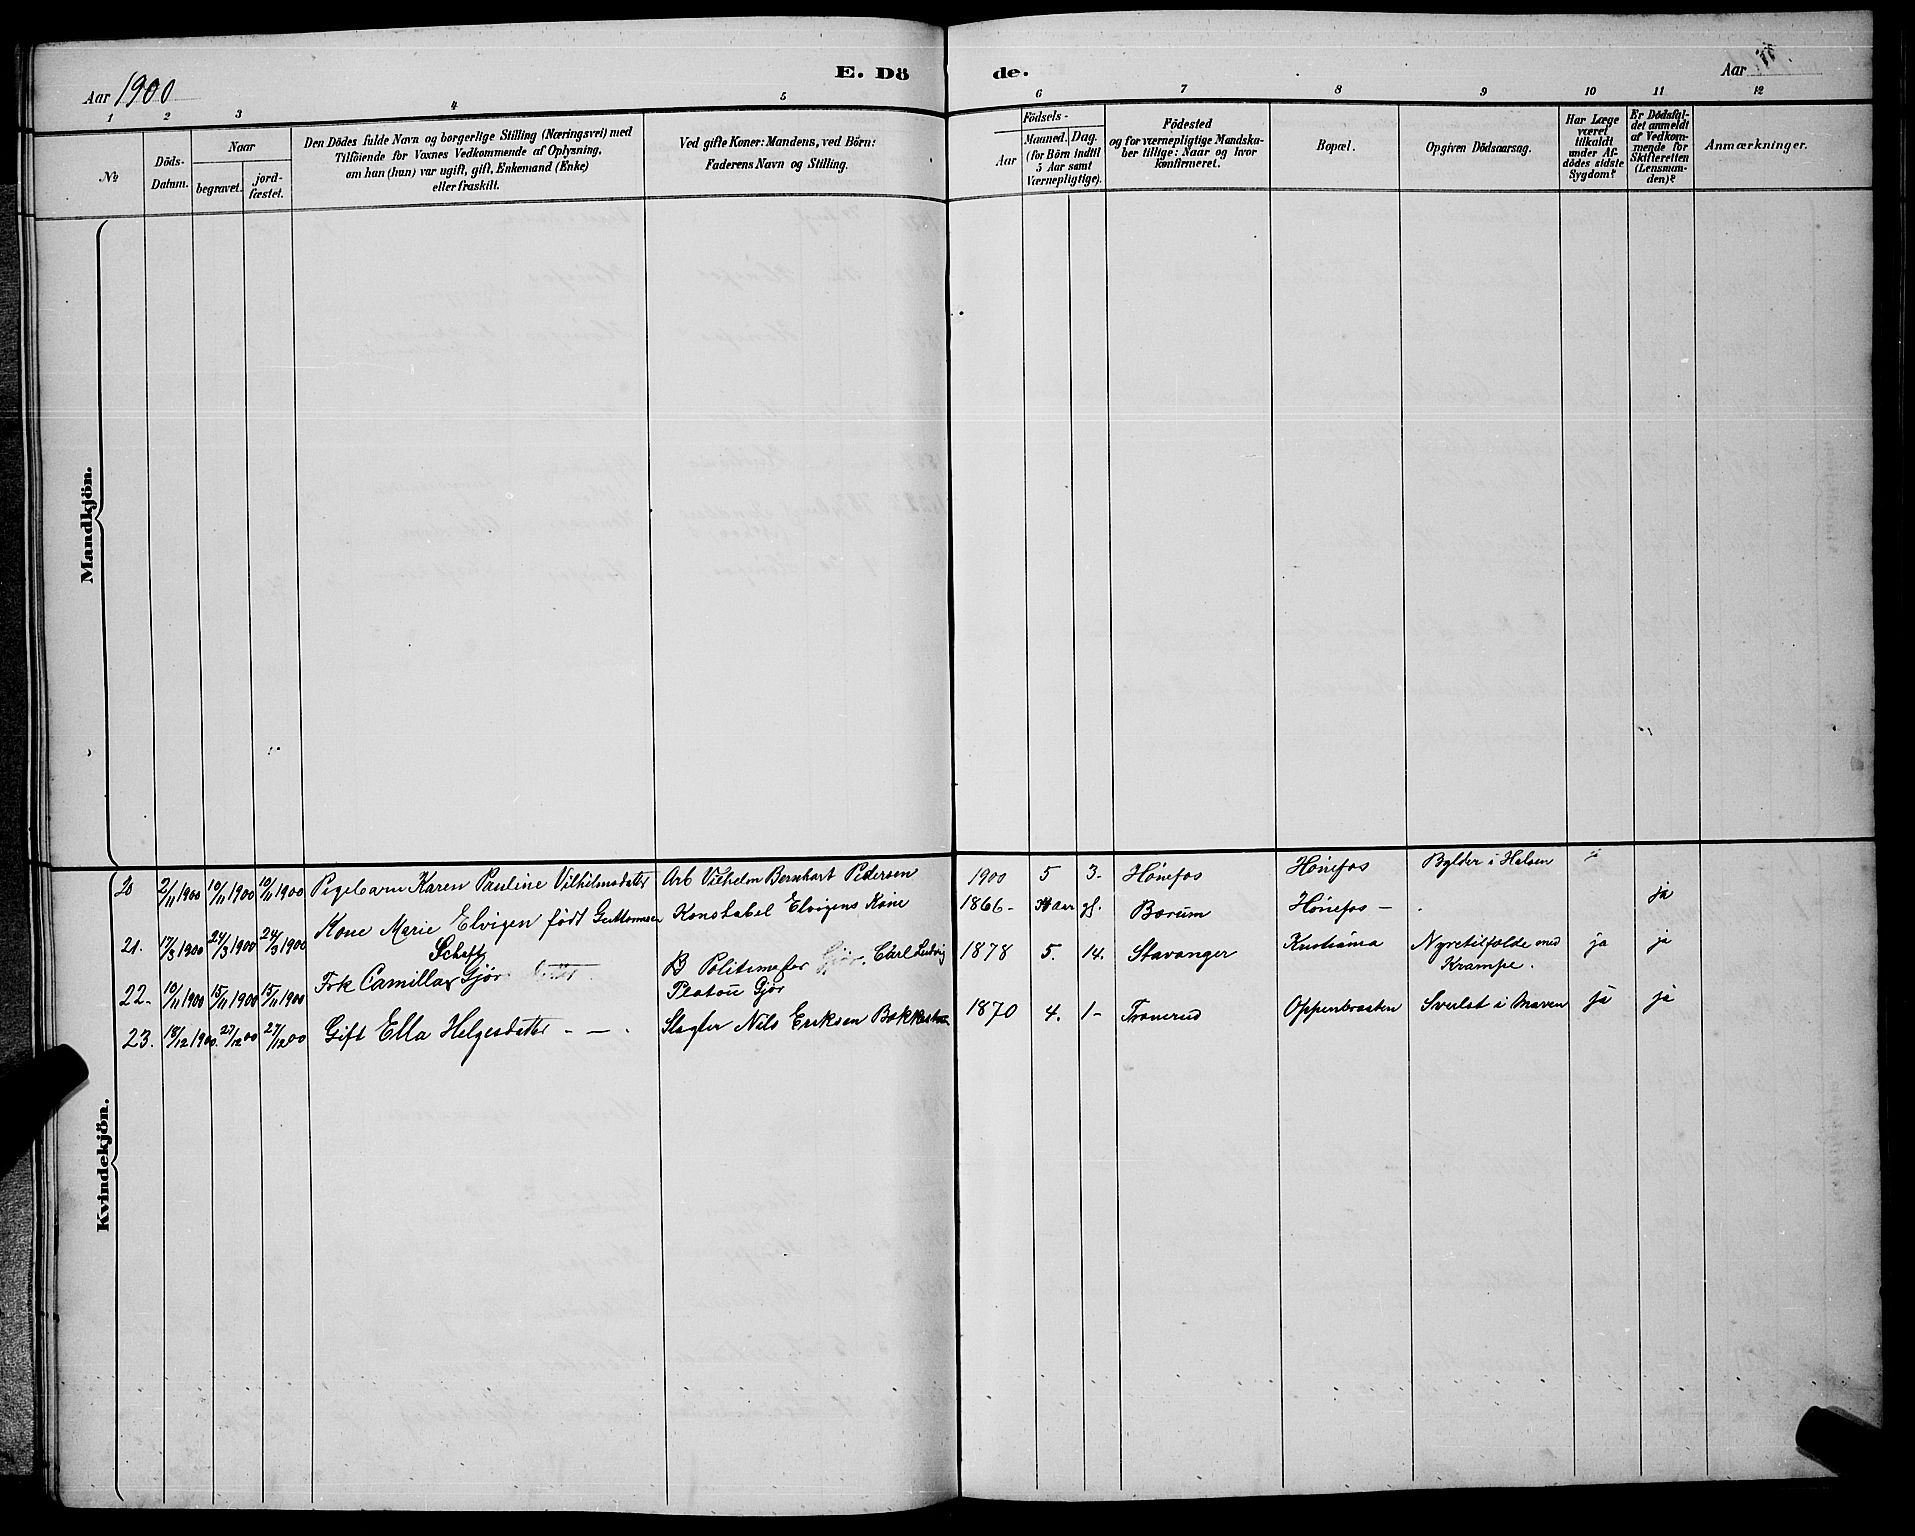 Aar 1900
E. Dö
de.
Aar
1
2
3
4
5
6
7
8
9
10
11
12
№
Döds-
Datum.
Naar
begravet.
jord-
fæstet.
Den Dödes fulde Navn og borgerlige Stilling (Næringsvei) med
Tilföiende for Voxnes Vedkommende af Oplysning,
om han (hun) var ugift, gift, Enkemand (Enke)
eller fraskilt.
Ved gifte Koner: Mandens, ved Börn:
Faderens Navn og Stilling.
Födsels-
Aar
Maaned. Dag.
(for Börn indtil
5 Aar samt
Værnepligtige).
Födested
og for værnepligtige Mandska-
ber tillige: Naar og hvor
konfirmeret.
Bopæl.
Opgiven Dödsaarsag.
Har Læge
været
tilkaldt
under Af-
dödes sidste
Sygdom?
Er Dödsfal-
det anmeldt
af Vedkom-
mende for
Skifteretten
(Lensman-
den)?
Anmærkninger.
Mandkjön.
Kvindekjön.
20 2/11 1900 10/11 1900 10/11 1900 Pigebarn Karen Pauline Vilhelmsdatter Arb Vilhelm Bernhart Pedersen 1900 5 3- Hönefos Hönefos Bylder i Halsen
21. 17/3 1900 24/3 1900 24/3 1900 Kone Marie Elvigen födt Guttormsen Konstabel Elvigens Kone 1866- 34 aar gl. Bærum Hönefos - ja
22- 10/11 1900 15/11 1900 15/11 1900 Frk Camilla Schaft Gjör B Politimester Carl Ludvig
Platou Gjör 1878 5. 14. Stavanger Kristiania Nyretilfælde med
Krampe. ja ja
23. 18/12 1900. 27/12 00 27/12 00 Gift Ella Helgesdatter - - Slagter Nils Eriksen 1870 4. 1- Tranerud Oppenbraaten Sverlst i Maven ja ja